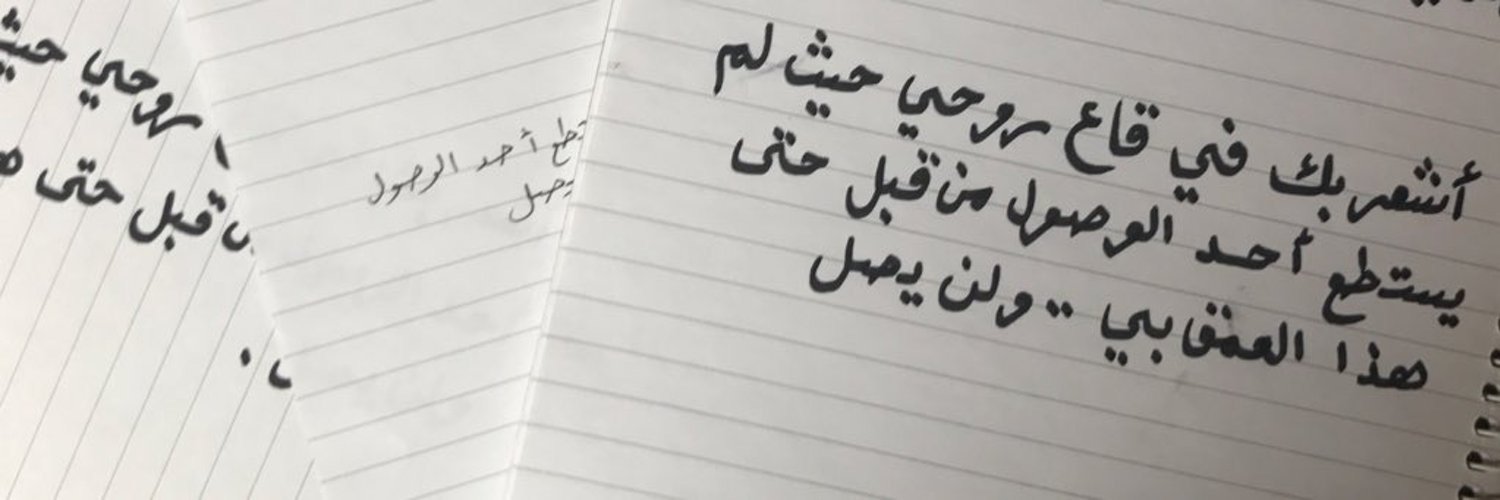 أشعر بك في قاع روحي حيث لم
يستطع أحد الوصول من قبل حتى
هذا العمق بي .. ولن يصل
أحد الوصول
يصل
روحي
قبل حتى